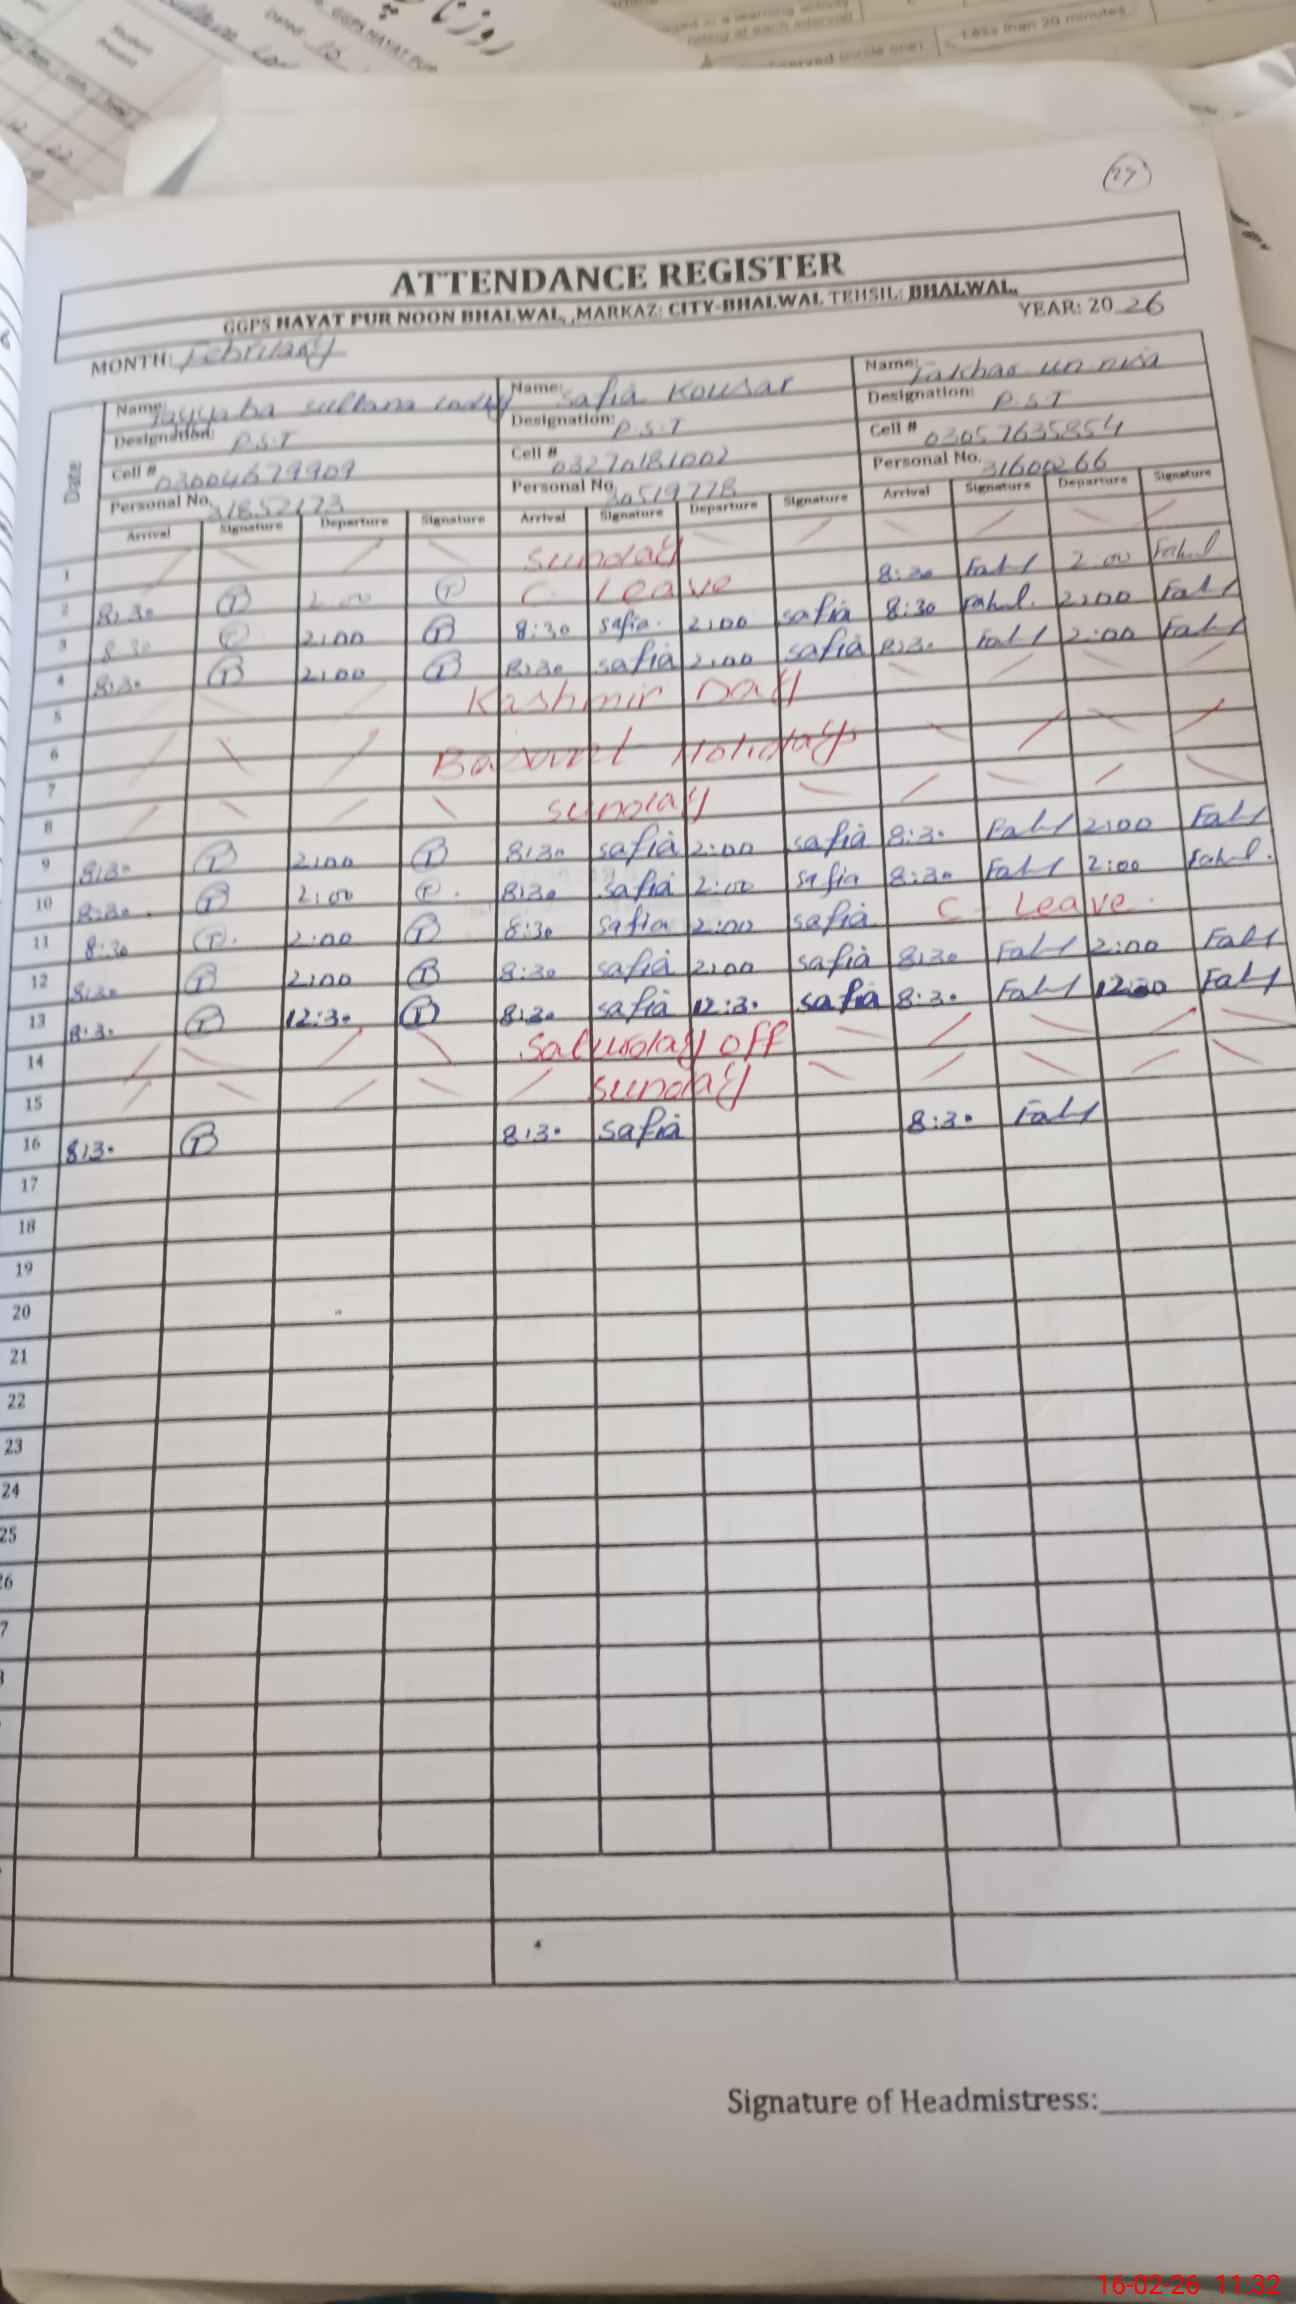 روزنا
GGPS HAYAT PUR
Dated 10
Less than 20 minutes
27
ATTENDANCE REGISTER
GGPS HAYAT PUR NOON BHALWAL, ,MARKAZ: CITY-BHALWAL TEHSIL: BHALWAL.
MONTH: February YEAR: 2026
Name: Tayyaba sultana Name: Safia Kousar Name: Fakhar un nisa
Designation: P.S.T Designation: P.S.T Designation: P.S.T
Cell # 03004679909 Cell # 03270181002 Cell # 03057635854
Personal No. 31852173 Personal No. 30519778 Personal No. 31600266
Date Arrival Signature Departure Signature Arrival Signature Departure Signature Arrival Signature Departure Signature
1 Sunday
2 8:30 T 2:00 T C. Leave 8:30 Fakh 2:00 Fakh
3 8:30 T 2:00 T 8:30 Safia 2:00 Safia 8:30 Fakh 2:00 Fakh
4 8:30 T 2:00 T 8:30 Safia 2:00 Safia 8:30 Fakh 2:00 Fakh
5 Kashmir Day
6 Basant Holidays
7
8 Sunday
9 8:30 T 2:00 T 8:30 Safia 2:00 Safia 8:30 Fakh 2:00 Fakh
10 8:30 T 2:00 T 8:30 Safia 2:00 Safia 8:30 Fakh 2:00 Fakh
11 8:30 T 2:00 T 8:30 Safia 2:00 Safia C. Leave
12 8:30 T 2:00 T 8:30 Safia 2:00 Safia 8:30 Fakh 2:00 Fakh
13 8:30 T 12:30 T 8:30 Safia 12:30 Safia 8:30 Fakh 12:30 Fakh
14 Saturday off
15 Sunday
16 8:30 T 8:30 Safia 8:30 Fakh
17
18
19
20
21
22
23
24
25
Signature of Headmistress:
16-02-26 11:32